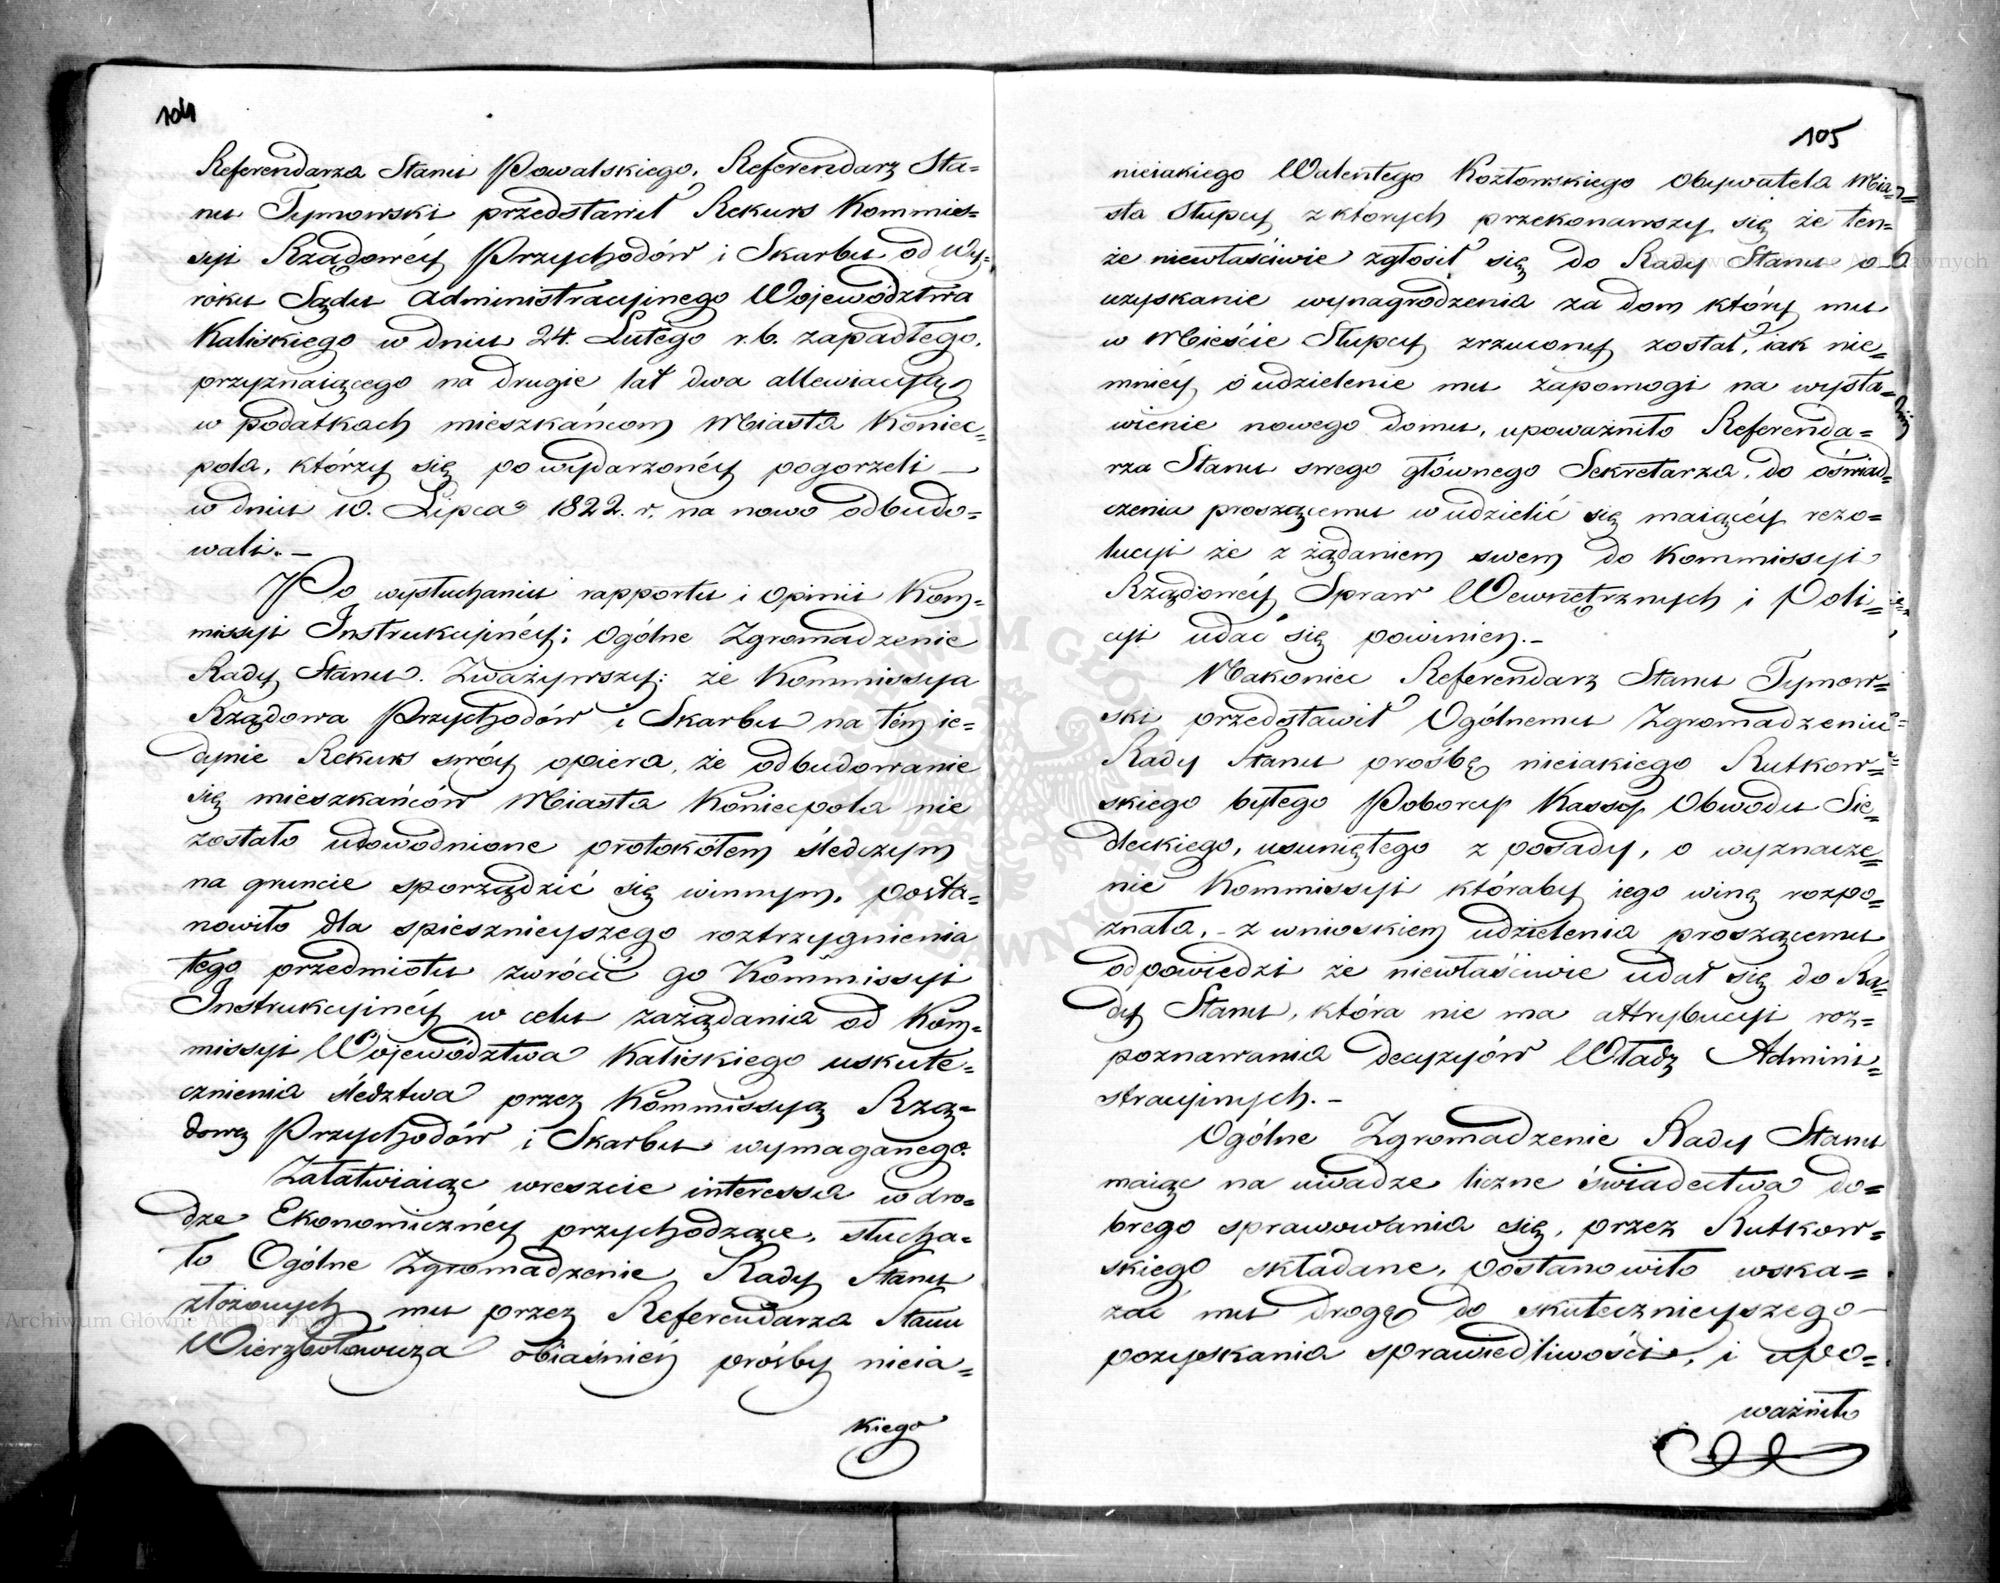 104
Referendarza Stanu Powalskiego, Referendarz Sta=
nu Tymowski przedstawił Rekurs Kommis=
syi Rządowéy Przychodów i Skarbu od Wy=
roku Sądu Administracyinego Województwa
Kaliskiego w dniu 24. Lutego r. b. zapadłego,
przyznaiącego na drugie lat dwa allewiacyą
w podatkach mieszkańcom Miasta Koniec=
pola, którzy się po wydarzonéy pogorzeli —
w dniu 10. Lipca 1822. r. na nowo odbudo=
wali. —
Po wysłuchaniu rapportu i opinii Kom=
missyi Instrukcyinéy; Ogólne Zgromadzenie
Rady Stanu. Zważywszy: że Kommissya
Rządowa Przychodów i Skarbu na tém ie=
dynie Rekurs swóy opiera, że odbudowanie
się mieszkańców Miasta Koniecpola nie
zostało udowodnione protokółem śledczym
na gruncie sporządzić się winnym, posta=
nowiło dla spiesznieyszego roztrzygnienia
tego przedmiotu zwrócić go Kommissyi
Instrukcyinéy w celu zażądania od Kom=
missyi Województwa Kaliskiego uskute=
cznienia śledztwa przez Kommissyą Rzą=
dową Przychodów i Skarbu wymaganego.
Załatwiaiąc wreszcie interessa w dro=
dze Ekonomicznéy przychodzące, słucha=
ło Ogólne Zgromadzenie Rady Stanu
złożonych mu przez Referendarza Stanu
Wierzbołowicza obiaśnień prósby nieia=
kiego
105
nieiakiego Walentego Kozłowskiego Obywatela Mia=
sta Słupcy z których przekonawszy się że ten=
że niewłaściwie zgłosił się do Rady Stanu o
uzyskanie wynagrodzenia za dom który mu
w Mieście Słupcy zrzucony został, iak nie=
mniéy o udzielenie mu zapomogi na wysta=
wienie nowego domu, upoważniło Referenda=
rza Stanu swego głównego Sekretarza, do oświad=
czenia proszącemu w udzielić się maiącéy rezo=
lucyi że z żądaniem swem do Kommissyi
Rządowéy Spraw Wewnętrznych i Poli=
cyi udać się powinien. —
Nakoniec Referendarz Stanu Tymow=
ski przedstawił Ogólnemu Zgromadzeniu
Rady Stanu prośbę nieiakiego Rutkow=
skiego byłego Poborcy Kassy Obwodu Sie=
dleckiego, usuniętego z posady, o wyznacze=
nie Kommissyi któraby iego winę rozpo=
znała, — z wnioskiem udzielenia proszącemu
odpowiedzi że niewłaściwie udał się do Ra=
dy Stanu, która nie ma attrybucyi roz=
poznawania decyzyów Władz Admini=
stracyinych. —
Ogólne Zgromadzenie Rady Stanu
maiąc na uwadze liczne świadectwa do=
brego sprawowania się, przez Rutkow=
skiego składane, postanowiło wska=
zać mu drogę do skutecznieyszego —
pozyskania sprawiedliwości, i upo=
ważniło
Archiwum Główne Akt Dawnych